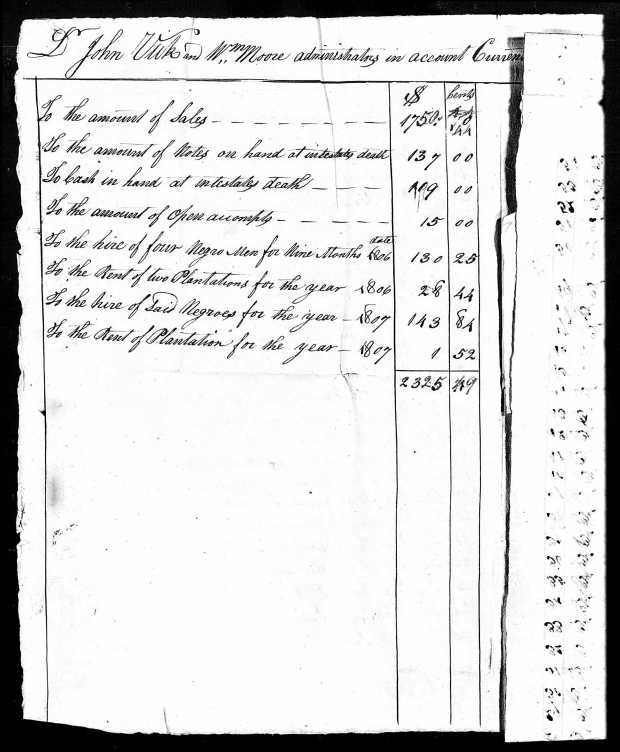 Dr John Vick and Wm Moore administrators in account Curren
$ Cents
To the amount of Sales 1750. 44
To the amount of Notes on hand at intestates death 137 00
To Cash in hand at intestates death 119 00
To the amount of Open accompts 15 00
date
To the hire of four Negro Men for Nine Months 1806 130 25
To the Rent of two Plantations for the year 1806 28 44
To the hire of Said Negroes for the year 1807 143 84
To the Rent of Plantation for the year 1807 1 52
2325 49